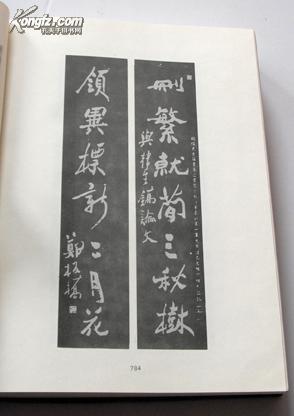 孔夫子旧书网
刪繁就簡三秋樹
與韓生鎬論文
領異標新二月花
鄭板橋
784